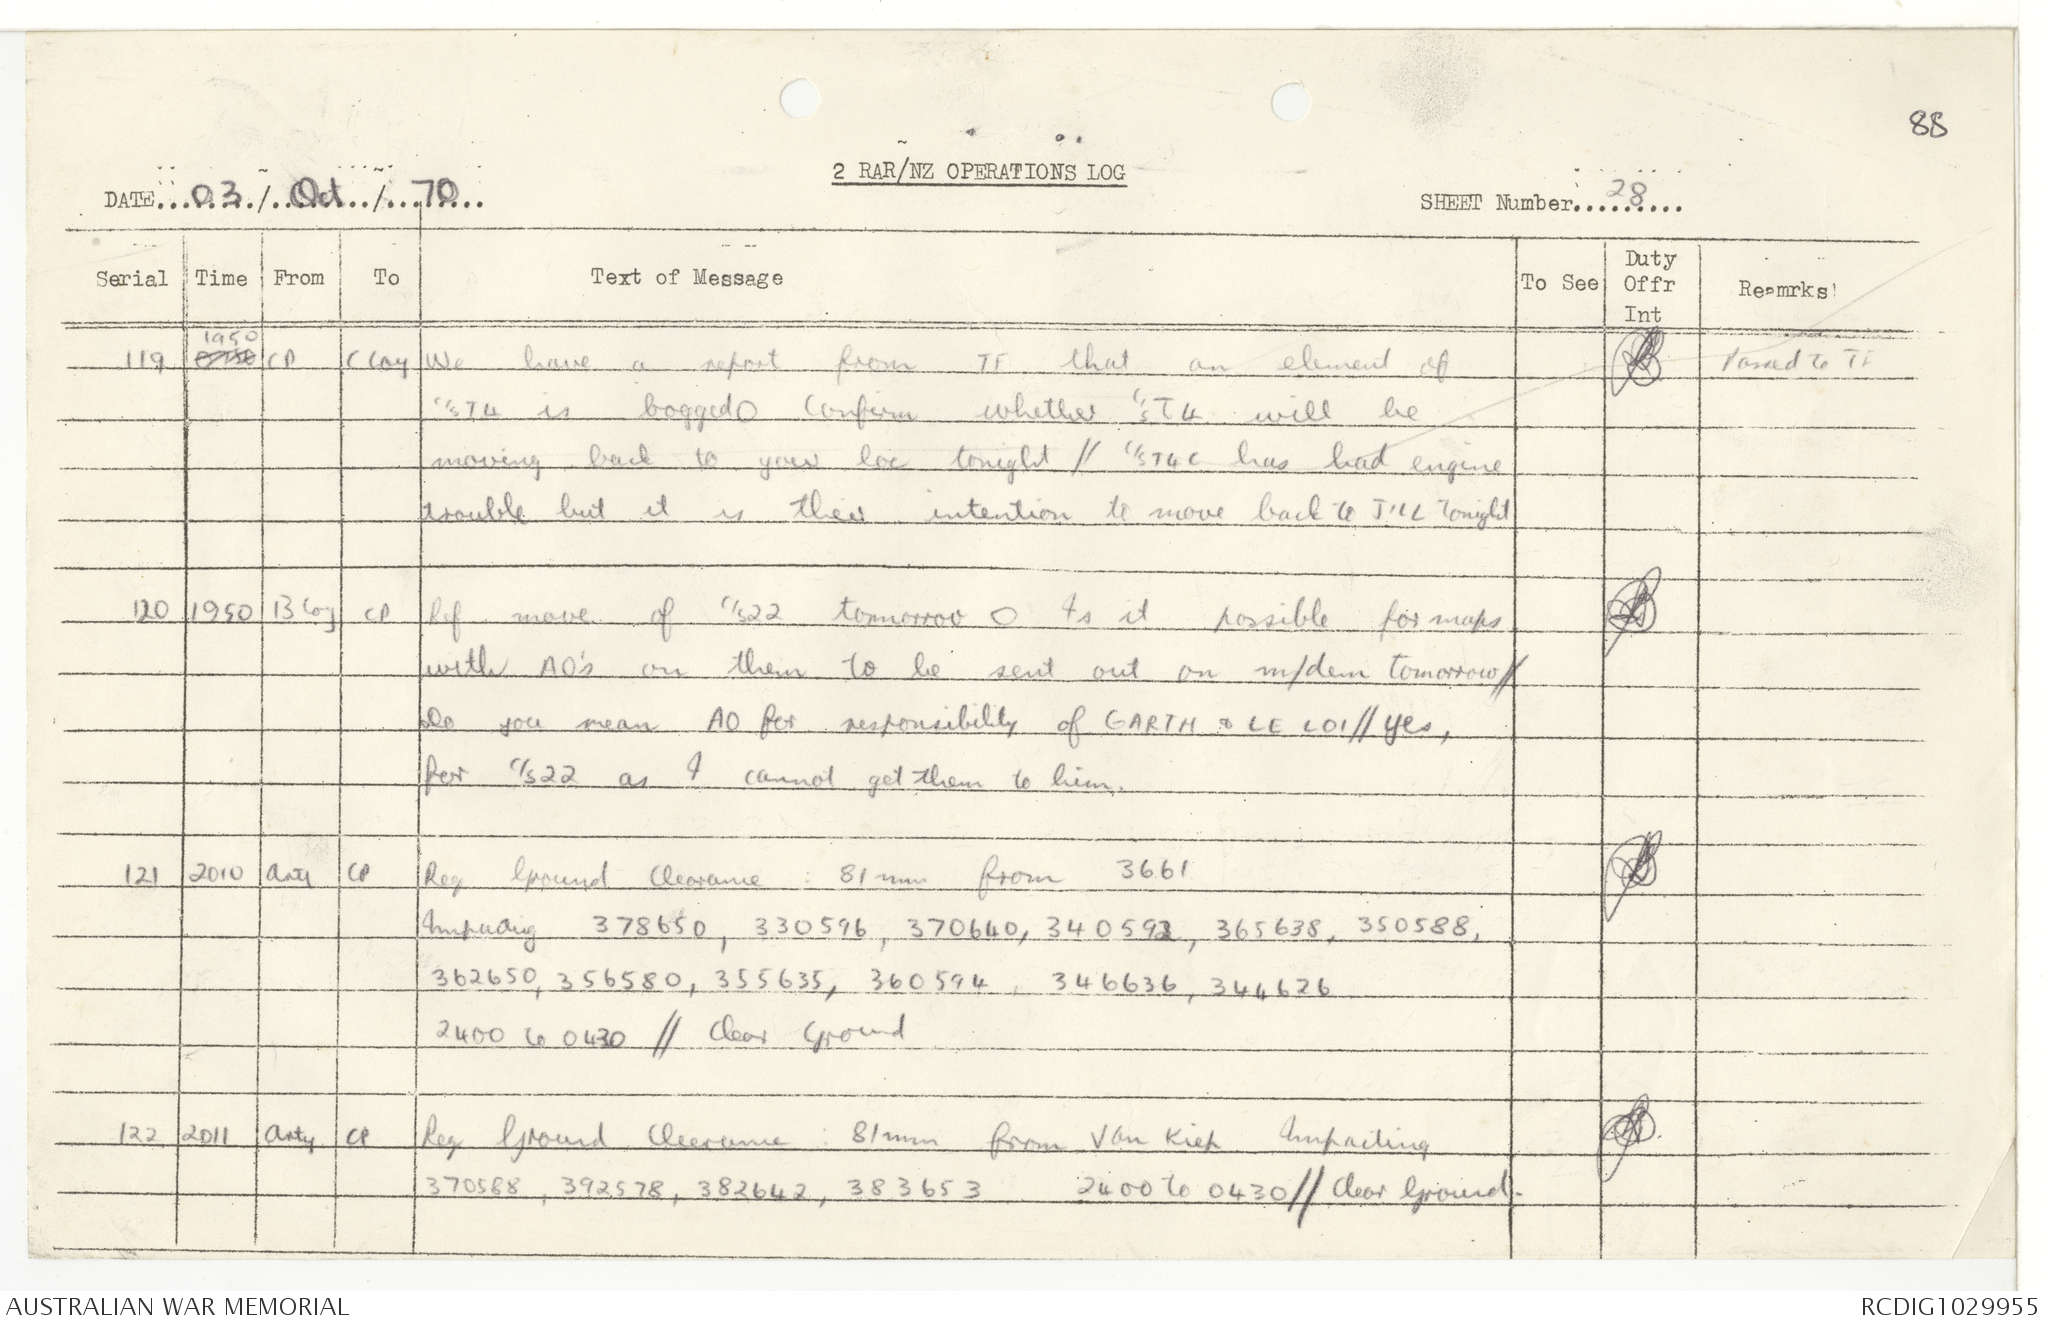 88
2 RAR/NZ OPERATIONS LOG
DATE...03./..Oct../..70...
SHEET Number...28...
Serial Time From To Text of Message To See Duty Offr Int Reamrks
1950
119 CP C Coy We have a report from TF that an element of Passed to TF
C/S T4 is bogged O Confirm whether C/S T4 will be
moving back to your loc tonight // C/S T4C has had engine
trouble but it is their intention to move back to JILL tonight
120 1950 B Coy CP Ref move of C/S 22 tomorrow O Is it possible for maps
with AO's on them to be sent out on m/dem tomorrow //
Do you mean AO for responsibility of GARTH & LE LOI // Yes,
for C/S 22 as I cannot get them to him.
121 2010 Arty CP Req Ground Clearance : 81mm from 3661
Impacting 378650, 330596, 370640, 340592, 365638, 350588,
362650, 356580, 355635, 360594, 346636, 344626
2400 to 0430 // Clear Ground
122 2011 Arty CP Req Ground Clearance : 81mm from Van Kiep Impacting
370588, 392578, 382642, 383653 2400 to 0430 // Clear Ground.
AUSTRALIAN WAR MEMORIAL
RCDIG1029955